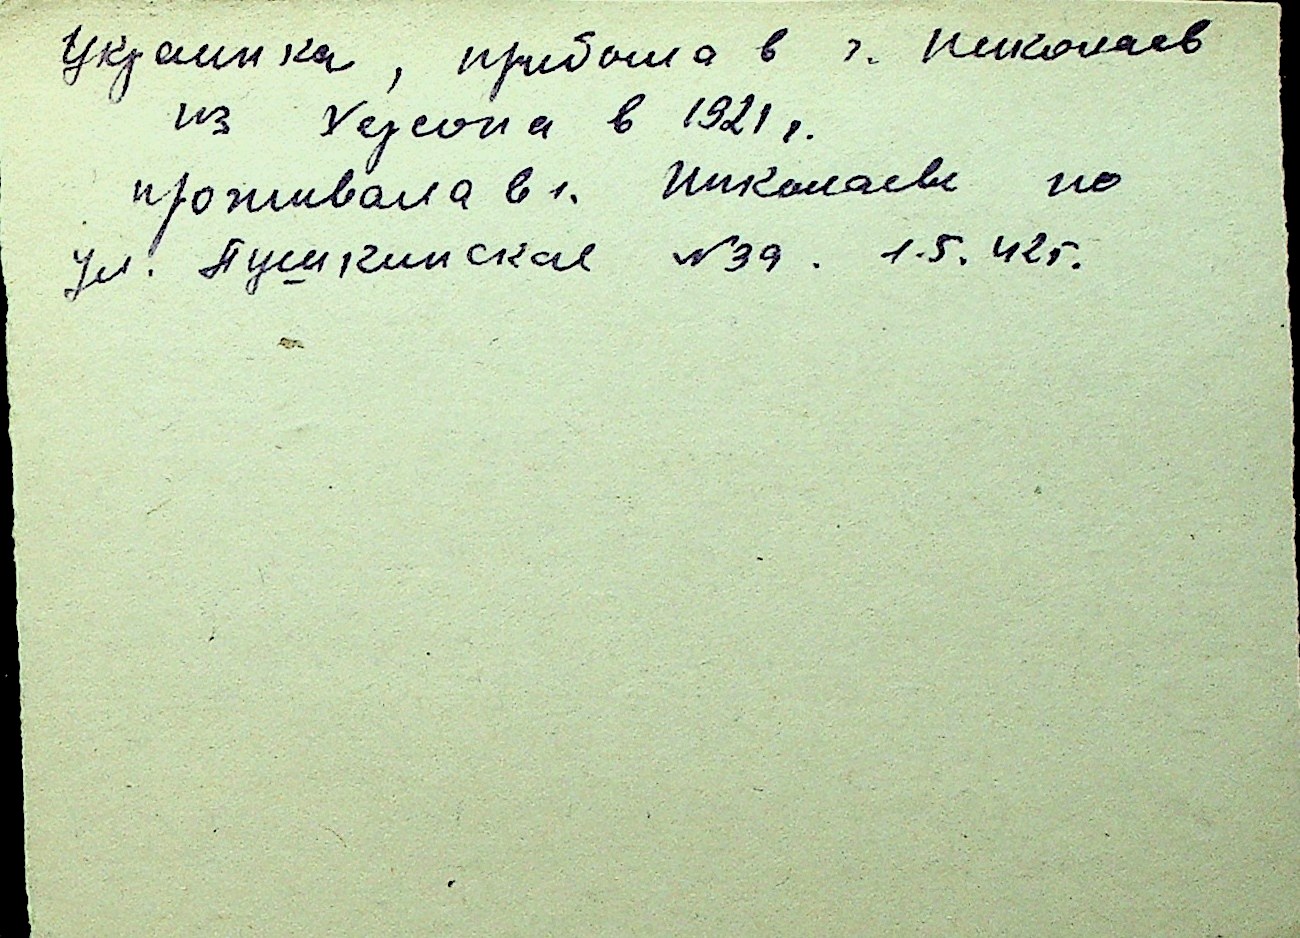 Украинка, прибыла в г. Николаев
из Херсона в 1921 г.
проживала в г. Николаеве по
ул. Пушкинская №39. 1.5.42г.